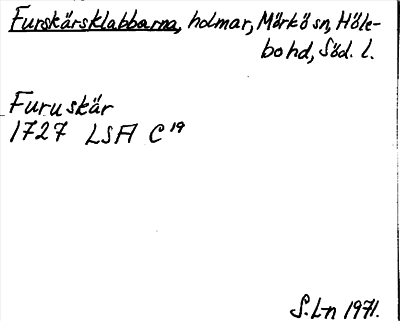 Furskärsklabbarna, holmar, Mörkö sn, Höle-
bo hd, Söd. l.
Furuskär
1727 LSA C19
S. L-n 1971.